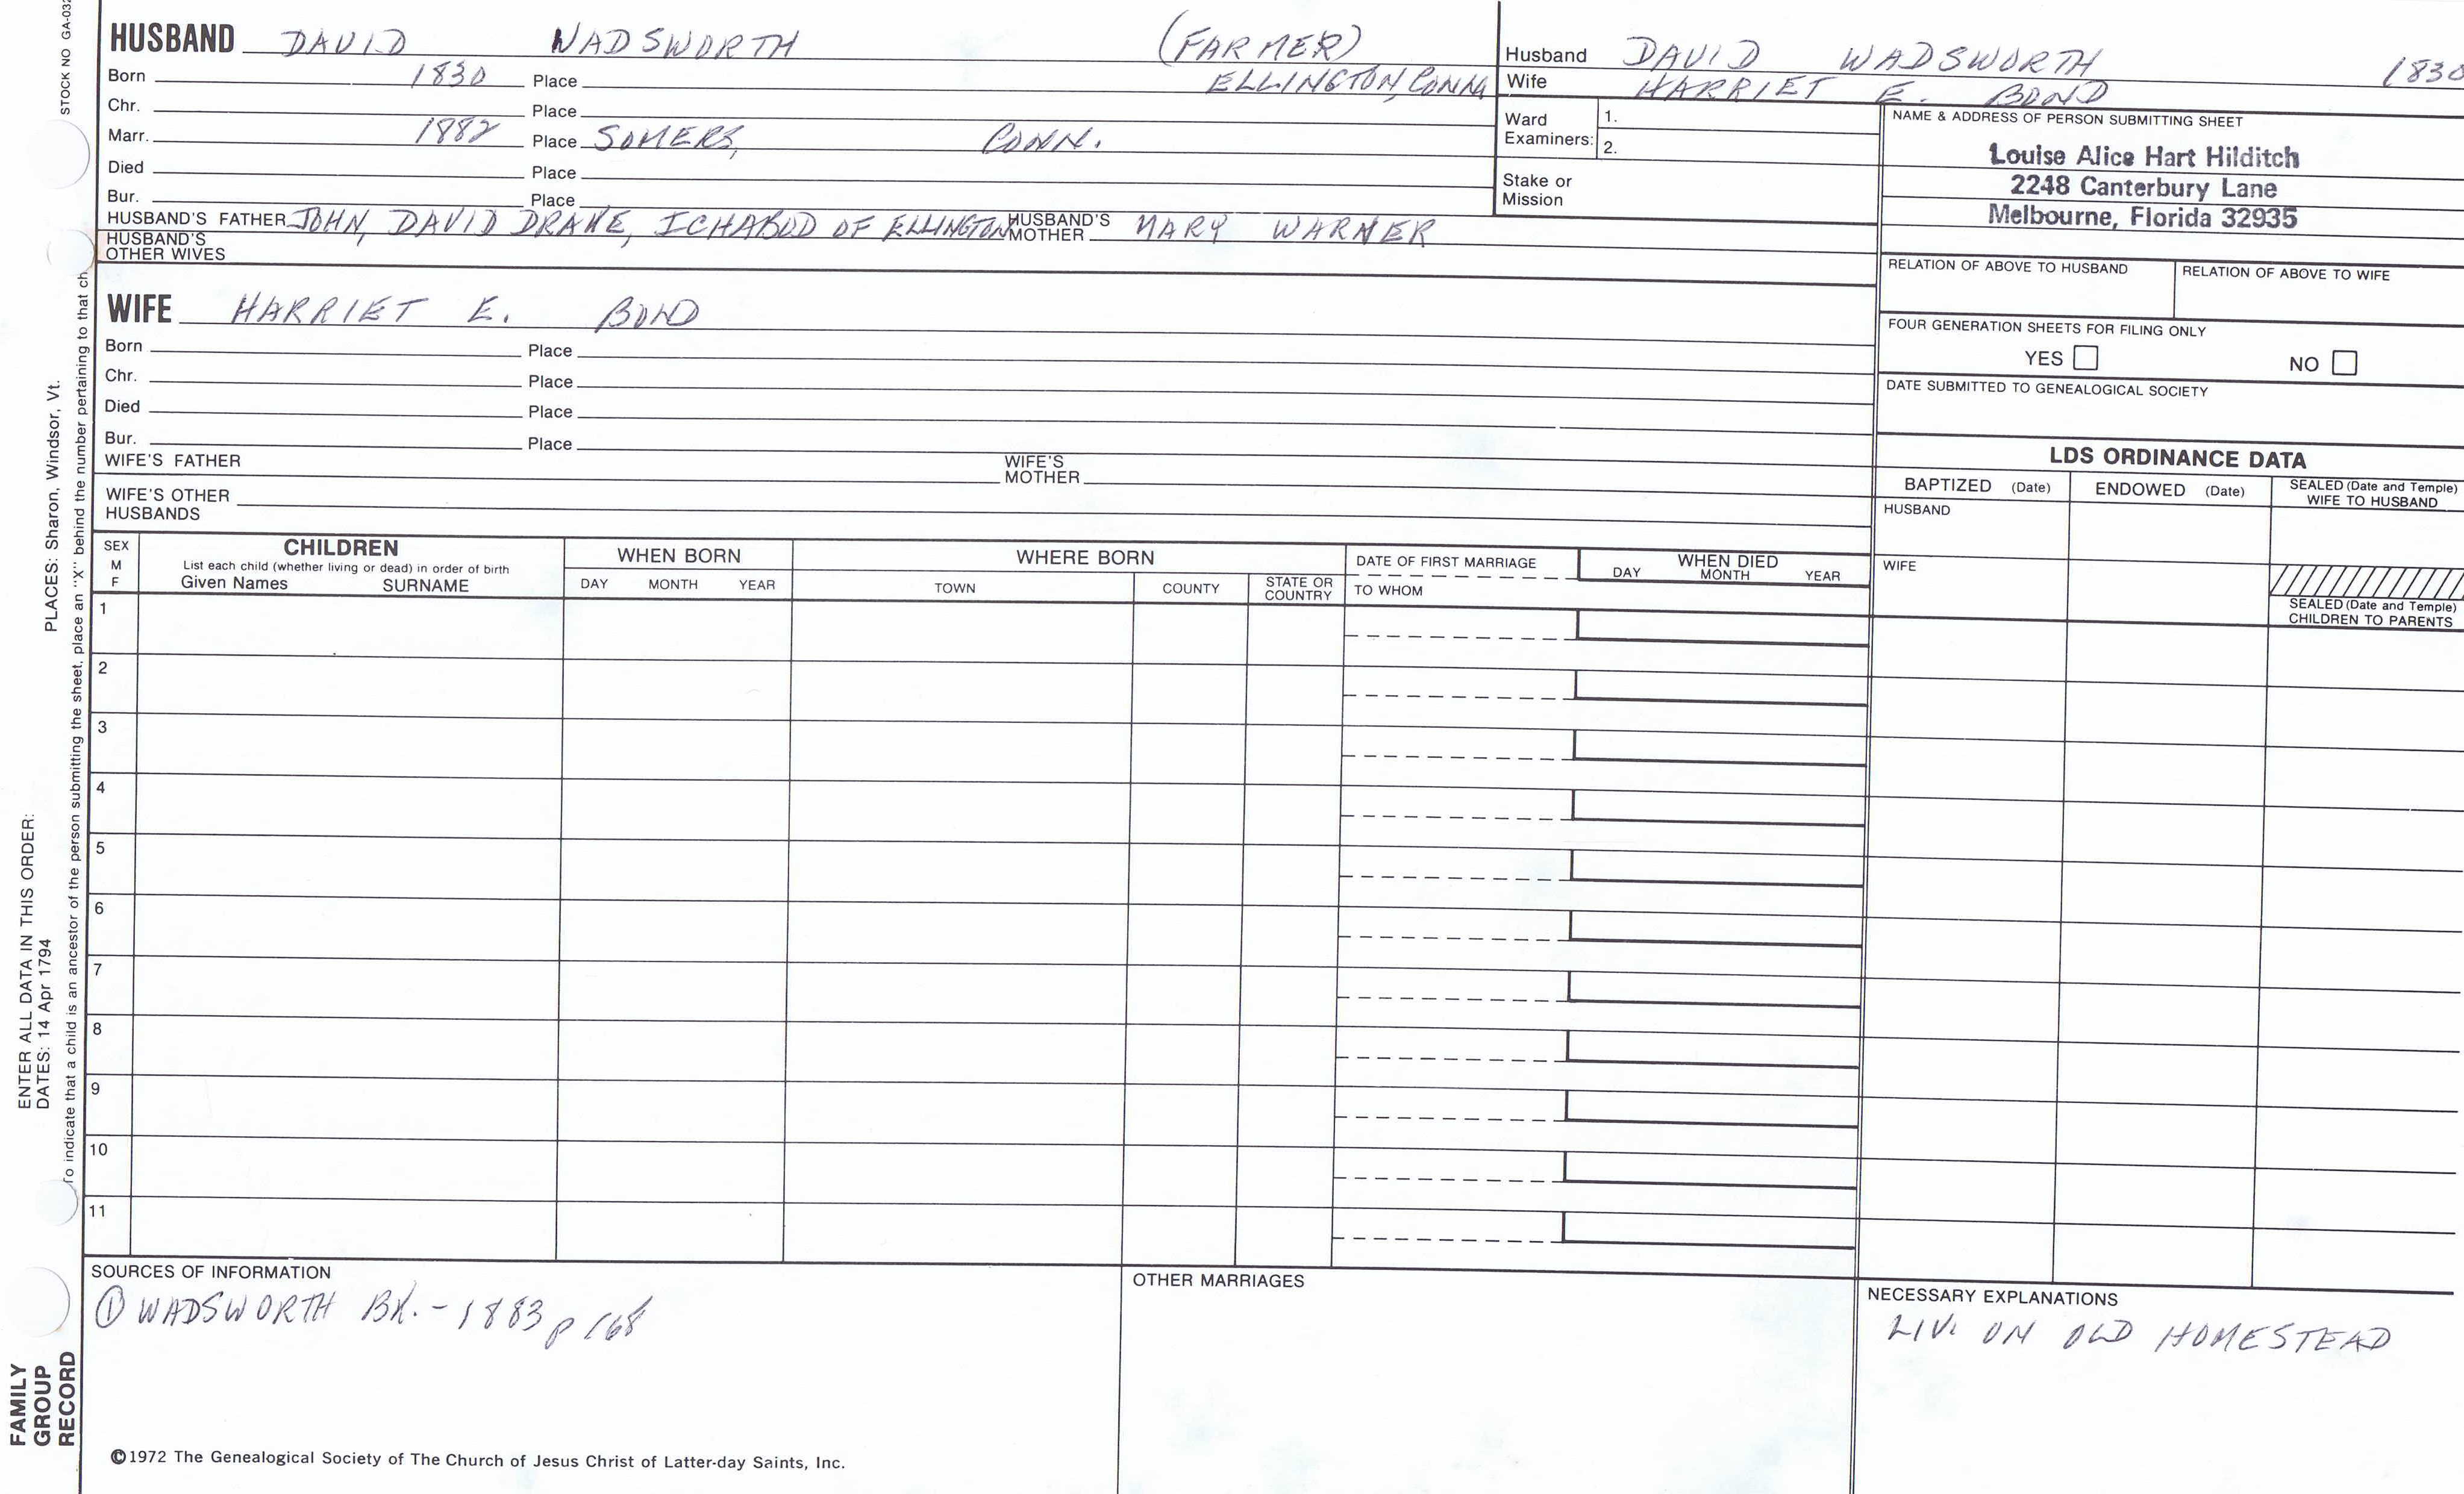 STOCK NO GA-032
HUSBAND DAVID WADSWORTH (FARMER)
Born 1830 Place ELLINGTON, CONN.
Chr. Place
Marr. 1882 Place SOMERS, CONN.
Died Place
Bur. Place
HUSBAND'S FATHER JOHN, DAVID DRAKE, ICHABOD OF ELLINGTON HUSBAND'S MOTHER MARY WARNER
HUSBAND'S OTHER WIVES
WIFE HARRIET E. BOND
Born Place
Chr. Place
Died Place
Bur. Place
WIFE'S FATHER WIFE'S MOTHER
WIFE'S OTHER HUSBANDS
Husband DAVID WADSWORTH 1830
Wife HARRIET E. BOND
Ward Examiners: 1.
2.
Stake or Mission
NAME & ADDRESS OF PERSON SUBMITTING SHEET
Louise Alice Hart Hilditch
2248 Canterbury Lane
Melbourne, Florida 32935
RELATION OF ABOVE TO HUSBAND RELATION OF ABOVE TO WIFE
FOUR GENERATION SHEETS FOR FILING ONLY
YES NO
DATE SUBMITTED TO GENEALOGICAL SOCIETY
LDS ORDINANCE DATA
BAPTIZED (Date) ENDOWED (Date) SEALED (Date and Temple) WIFE TO HUSBAND
HUSBAND
WIFE
SEALED (Date and Temple)
CHILDREN TO PARENTS
SEX M F
CHILDREN
List each child (whether living or dead) in order of birth
Given Names SURNAME
WHEN BORN
DAY MONTH YEAR
WHERE BORN
TOWN COUNTY STATE OR COUNTRY
DATE OF FIRST MARRIAGE
TO WHOM
WHEN DIED
DAY MONTH YEAR
1
2
3
4
5
6
7
8
9
10
11
SOURCES OF INFORMATION
① WADSWORTH BK. - 1883 p 168
OTHER MARRIAGES
NECESSARY EXPLANATIONS
LIV. ON OLD HOMESTEAD
©1972 The Genealogical Society of The Church of Jesus Christ of Latter-day Saints, Inc.
FAMILY
GROUP
RECORD
ENTER ALL DATA IN THIS ORDER:
DATES: 14 Apr 1794 PLACES: Sharon, Windsor, Vt.
To indicate that a child is an ancestor of the person submitting the sheet, place an "X" behind the number pertaining to that ch